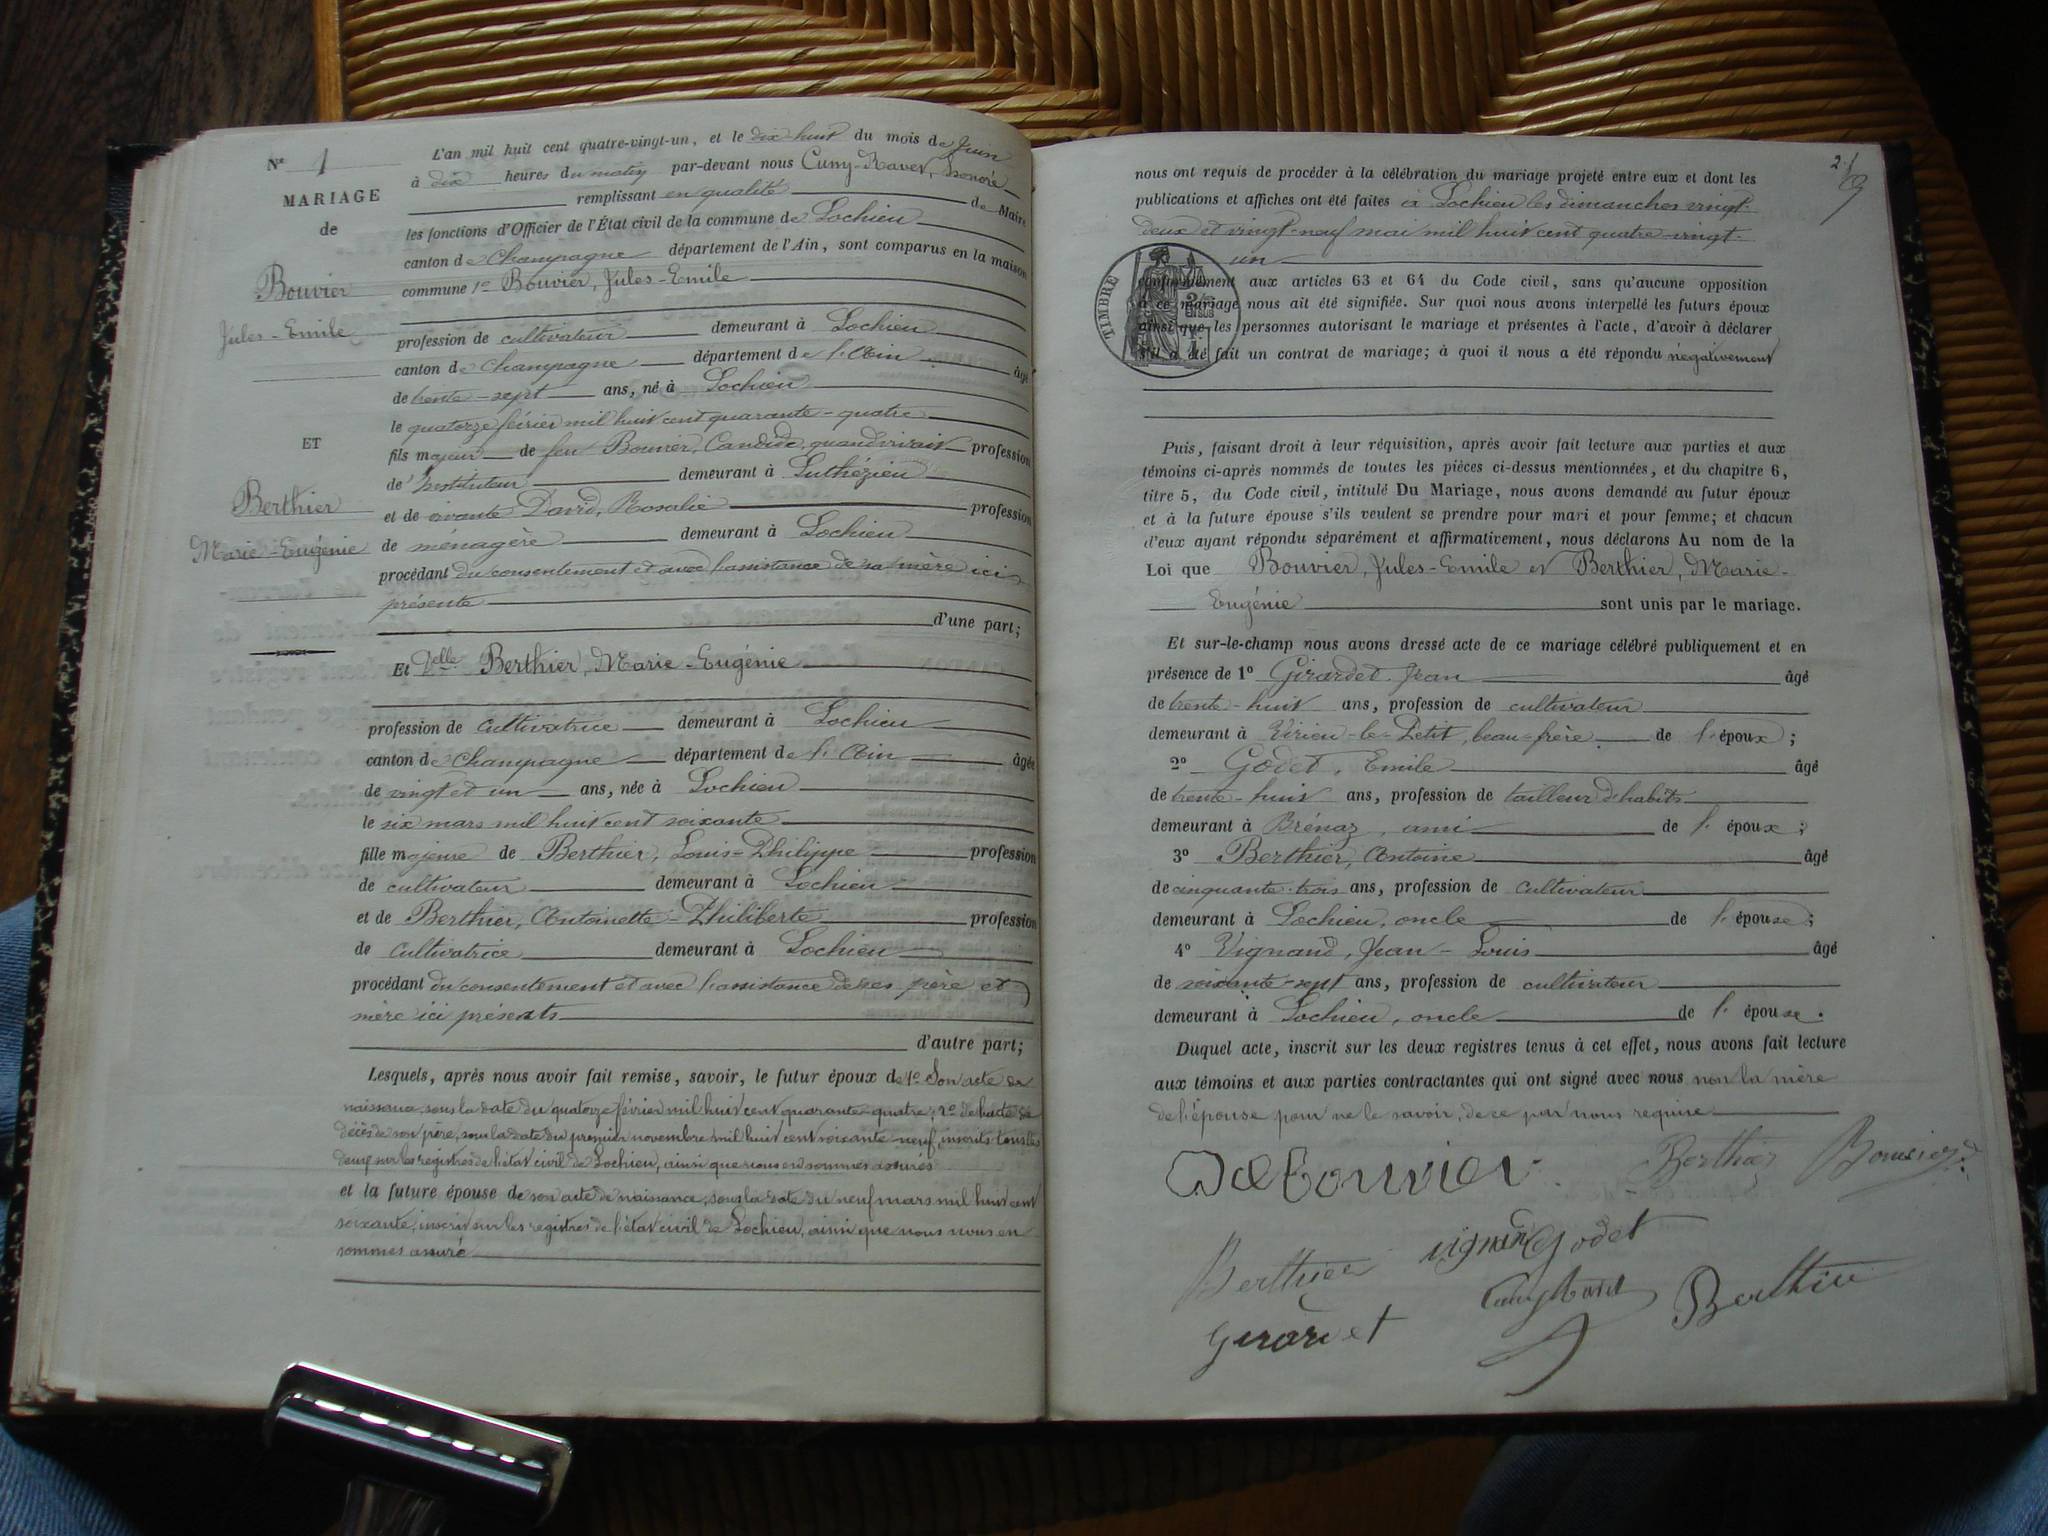 Nº 1
MARIAGE
de
Bouvier
Jules-Emile
ET
Berthier
Marie-Eugénie
L'an mil huit cent quatre-vingt-un, et le dix-huit du mois de Juin
à dix heures du matin par-devant nous Cuny-Ravet, Honoré
remplissant en qualité de Maire
les fonctions d'Officier de l'État civil de la commune de Lochieu
canton de Champagne département de l'Ain, sont comparus en la maison
commune 1º Bouvier, Jules-Emile
profession de cultivateur demeurant à Lochieu
canton de Champagne département de l'Ain âgé
de trente-sept ans, né à Lochieu
le quatorze février mil huit cent quarante-quatre
fils majeur de feu Bouvier, Candide, quand vivait profession
de Instituteur demeurant à Luthézieu
et de vivante David, Rosalie profession
de ménagère demeurant à Lochieu
procédant du consentement et avec l'assistance de sa mère ici
présente
d'une part;
Et Delle Berthier, Marie-Eugénie
profession de cultivatrice demeurant à Lochieu
canton de Champagne département de l'Ain âgée
de vingt et un ans, née à Lochieu
le six mars mil huit cent soixante
fille majeure de Berthier, Louis-Philippe profession
de cultivateur demeurant à Lochieu
et de Berthier, Antoinette-Philiberte profession
de cultivatrice demeurant à Lochieu
procédant du consentement et avec l'assistance de ses père et
mère ici présents
d'autre part;
Lesquels, après nous avoir fait remise, savoir, le futur époux de 1º Son acte de
naissance, sous la date du quatorze février mil huit cent quarante-quatre; 2º de l'acte de
décès de son père, sous la date du premier novembre mil huit cent soixante-neuf, inscrits tous les
deux sur les registres de l'état civil de Lochieu, ainsi que nous en sommes assurés
et la future épouse de son acte de naissance, sous la date du neuf mars mil huit cent
soixante, inscrit sur les registres de l'état civil de Lochieu, ainsi que nous nous en
sommes assuré
21
nous ont requis de procéder à la célébration du mariage projeté entre eux et dont les
publications et affiches ont été faites à Lochieu les dimanches vingt-
deux et vingt-neuf mai mil huit cent quatre-vingt-
un
TIMBRE
conformément aux articles 63 et 64 du Code civil, sans qu'aucune opposition
à ce mariage nous ait été signifiée. Sur quoi nous avons interpellé les futurs époux
ainsi que les personnes autorisant le mariage et présentes à l'acte, d'avoir à déclarer
s'il a été fait un contrat de mariage; à quoi il nous a été répondu négativement
Puis, faisant droit à leur réquisition, après avoir fait lecture aux parties et aux
témoins ci-après nommés de toutes les pièces ci-dessus mentionnées, et du chapitre 6,
titre 5, du Code civil, intitulé Du Mariage, nous avons demandé au futur époux
et à la future épouse s'ils veulent se prendre pour mari et pour femme; et chacun
d'eux ayant répondu séparément et affirmativement, nous déclarons Au nom de la
Loi que Bouvier, Jules-Emile et Berthier, Marie-
Eugénie sont unis par le mariage.
Et sur-le-champ nous avons dressé acte de ce mariage célébré publiquement et en
présence de 1º Girardet Jean âgé
de trente-huit ans, profession de cultivateur
demeurant à Virieu-le-Petit, beau-frère de l'époux;
2º Godet, Emile âgé
de trente-huit ans, profession de tailleur d'habits
demeurant à Brénaz, ami de l'époux;
3º Berthier, Antoine âgé
de cinquante-trois ans, profession de cultivateur
demeurant à Lochieu, oncle de l'épouse;
4º Vignand, Jean-Louis âgé
de soixante-sept ans, profession de cultivateur
demeurant à Lochieu, oncle de l'épouse.
Duquel acte, inscrit sur les deux registres tenus à cet effet, nous avons fait lecture
aux témoins et aux parties contractantes qui ont signé avec nous non la mère
de l'épouse pour ne le savoir, de ce par nous requise
Bouvier Berthier
Berthier Vignand Godet
Girardet Cuny Ravet Berthier